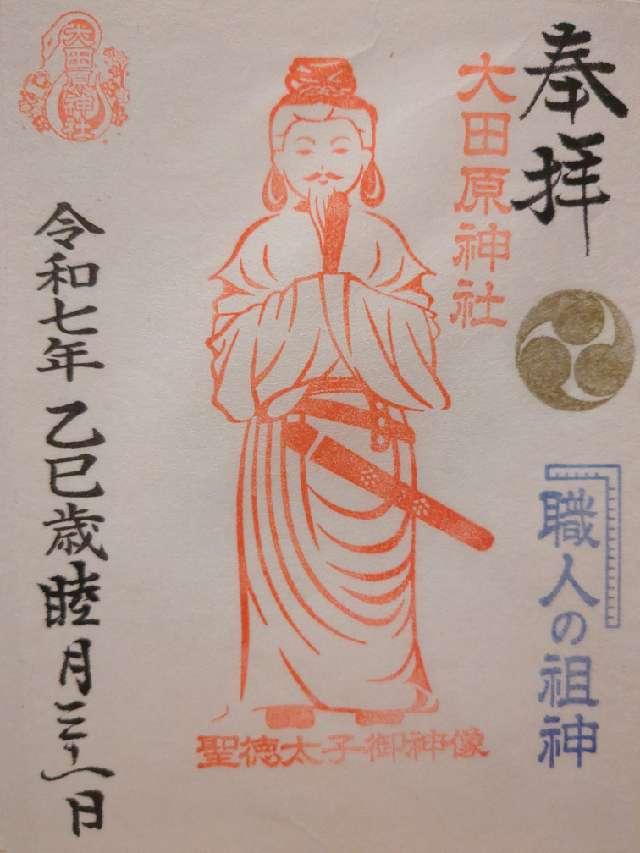 奉拝
職人の祖神
大田原神社
聖徳太子御神像
大田原神社
令和七年乙巳歳睦月三十一日